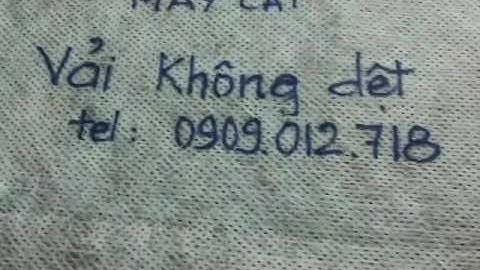 MÁY CẮT
Vải Không dệt
tel: 0909.012.718